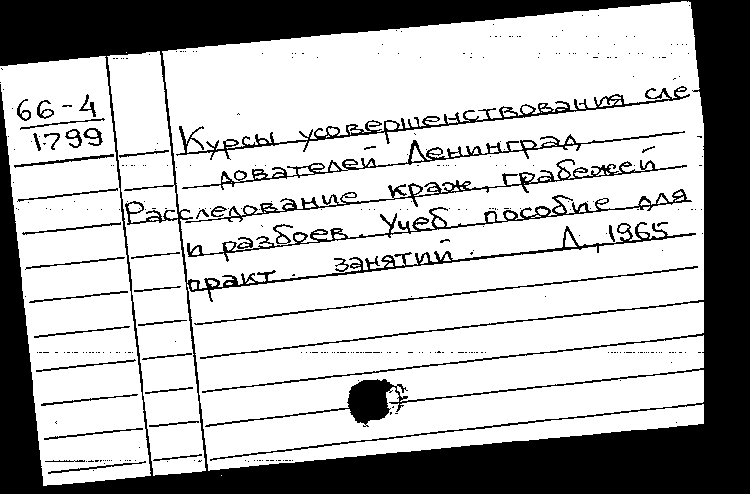 66-4
1799
Курсы усовершенствования сле-
дователей Ленинград
Расследование краж, грабежей
и разбоев. Учеб. пособие для
практ. занятий. Л., 1965